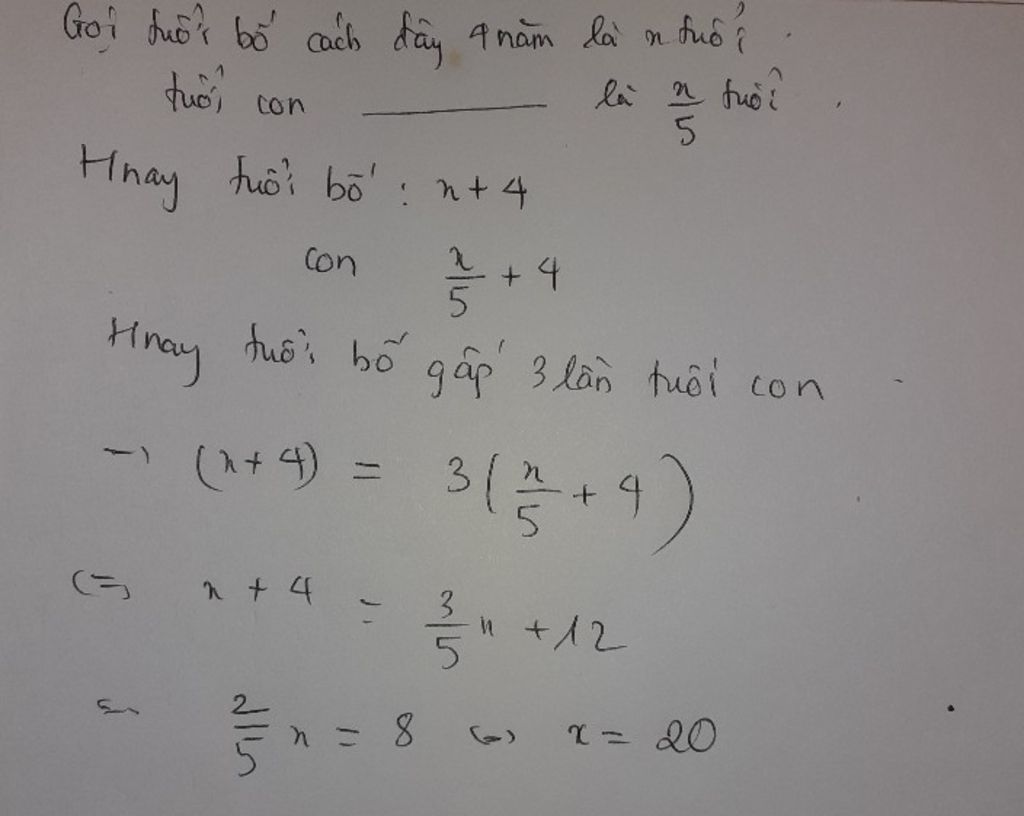 Gọi tuổi bố cách đây 4 năm là x tuổi.
tuổi con ________ là x/5 tuổi.
Hnay tuổi bố : x + 4
con x/5 + 4
Hnay tuổi bố gấp 3 lần tuổi con
→ (x + 4) = 3(x/5 + 4)
⇔ x + 4 = 3/5 x + 12
⇔ 2/5 x = 8 ⇔ x = 20